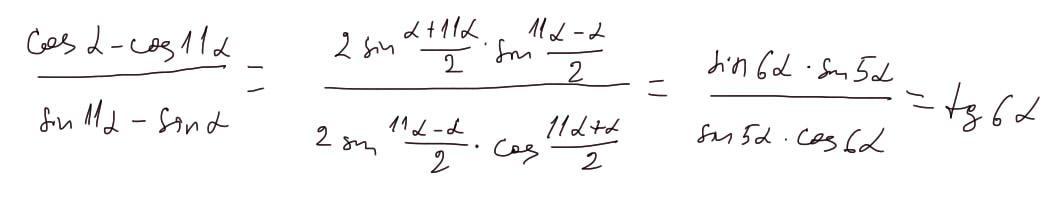 (cos α - cos 11α) / (sin 11α - sin α) = (2 sin (α+11α)/2 · sin (11α-α)/2) / (2 sin (11α-α)/2 · cos (11α+α)/2) = (sin 6α · sin 5α) / (sin 5α · cos 6α) = tg 6α